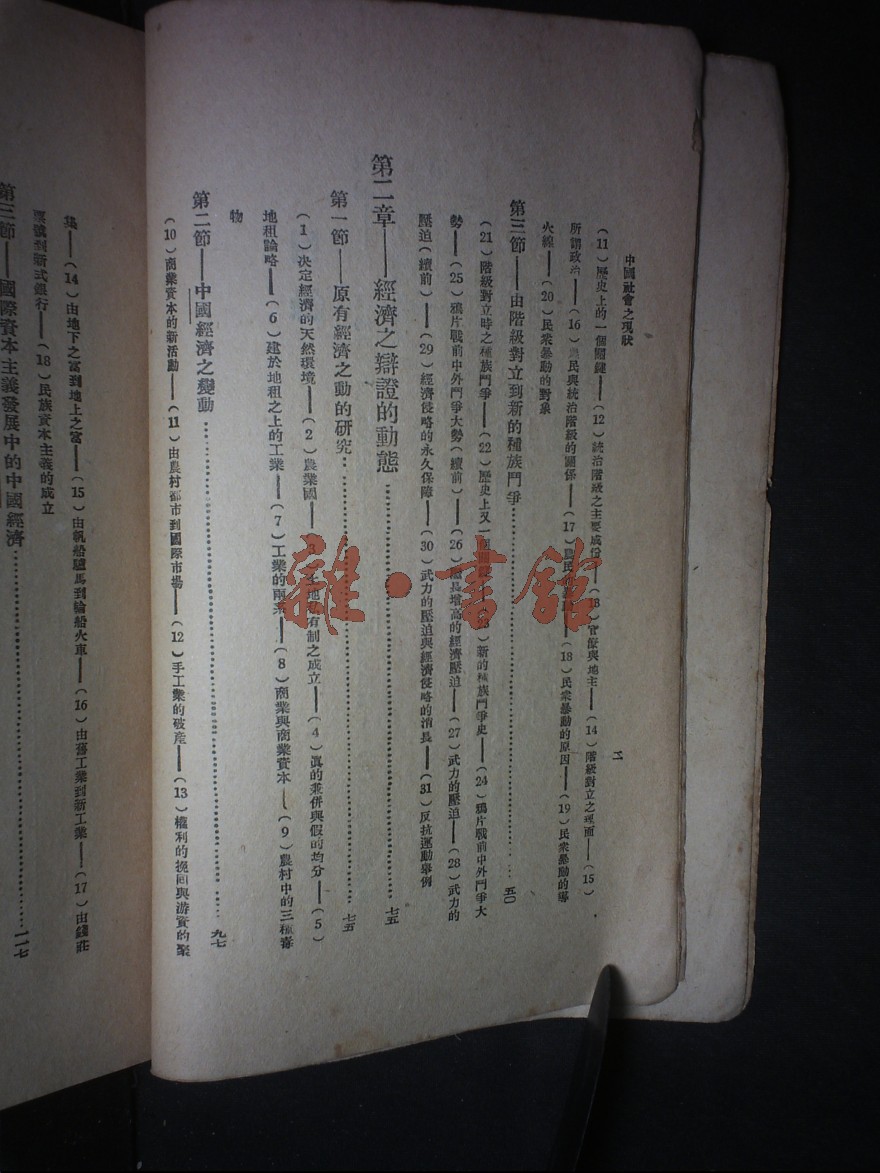 中國社會之現狀
二
(11)歷史上的一個關鍵——(12)統治階級之主要成份——(13)官僚與地主——(14)階級對立之裡面——(15)
所謂政治——(16)農民與統治階級的關係——(17)農民的——(18)民衆暴動的原因——(19)民衆暴動的導
火線——(20)民衆暴動的對象
第三節——由階級對立到新的種族鬥爭……五〇
(21)階級對立時之種族鬥爭——(22)歷史上又一個關鍵——(23)新的種族鬥爭史——(24)鴉片戰前中外鬥爭大
勢——(25)鴉片戰前中外鬥爭大勢(續前)——(26)增高的經濟壓迫——(27)武力的壓迫——(28)武力的
壓迫(續前)——(29)經濟侵略的永久保障——(30)武力的壓迫與經濟侵略的消長——(31)反抗運動舉例
第二章——經濟之辯證的動態……七五
第一節——原有經濟之動的研究……七五
(1)决定經濟的天然環境——(2)農業國——(3)土地私有制之成立——(4)眞的兼併與假的均分——(5)
地租論略——(6)建於地租之上的工業——(7)工業的兩系——(8)商業與商業資本——(9)農村中的三種毒
物
第二節——中國經濟之變動……九七
(10)商業資本的新活動——(11)由農村都市到國際市場——(12)手工業的破產——(13)權利的挽回與游資的聚
集——(14)由地下之富到地上之富——(15)由帆船驢馬到輪船火車——(16)由舊工業到新工業——(17)由錢莊
票號到新式銀行——(18)民族資本主義的成立
第三節——國際資本主義發展中的中國經濟……一一七
雜·書館